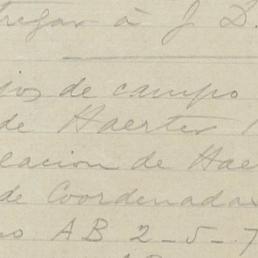 tregar á J D.
jos de campo
de Haerter
lacion de Hae
de Coordenadas
os AB 2-5-7
AB